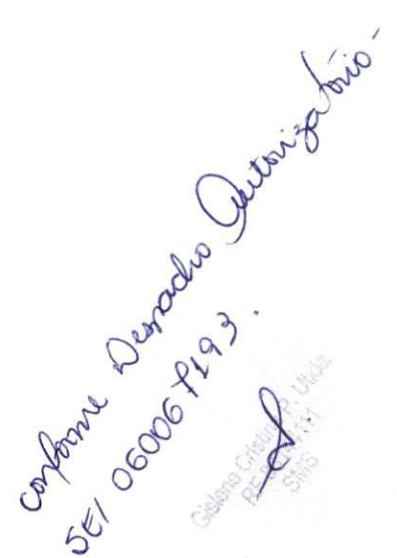 conforme Despacho Autorizatório -
SEI 06006 7193.
Gislene Cristina P. Ulida
SMS